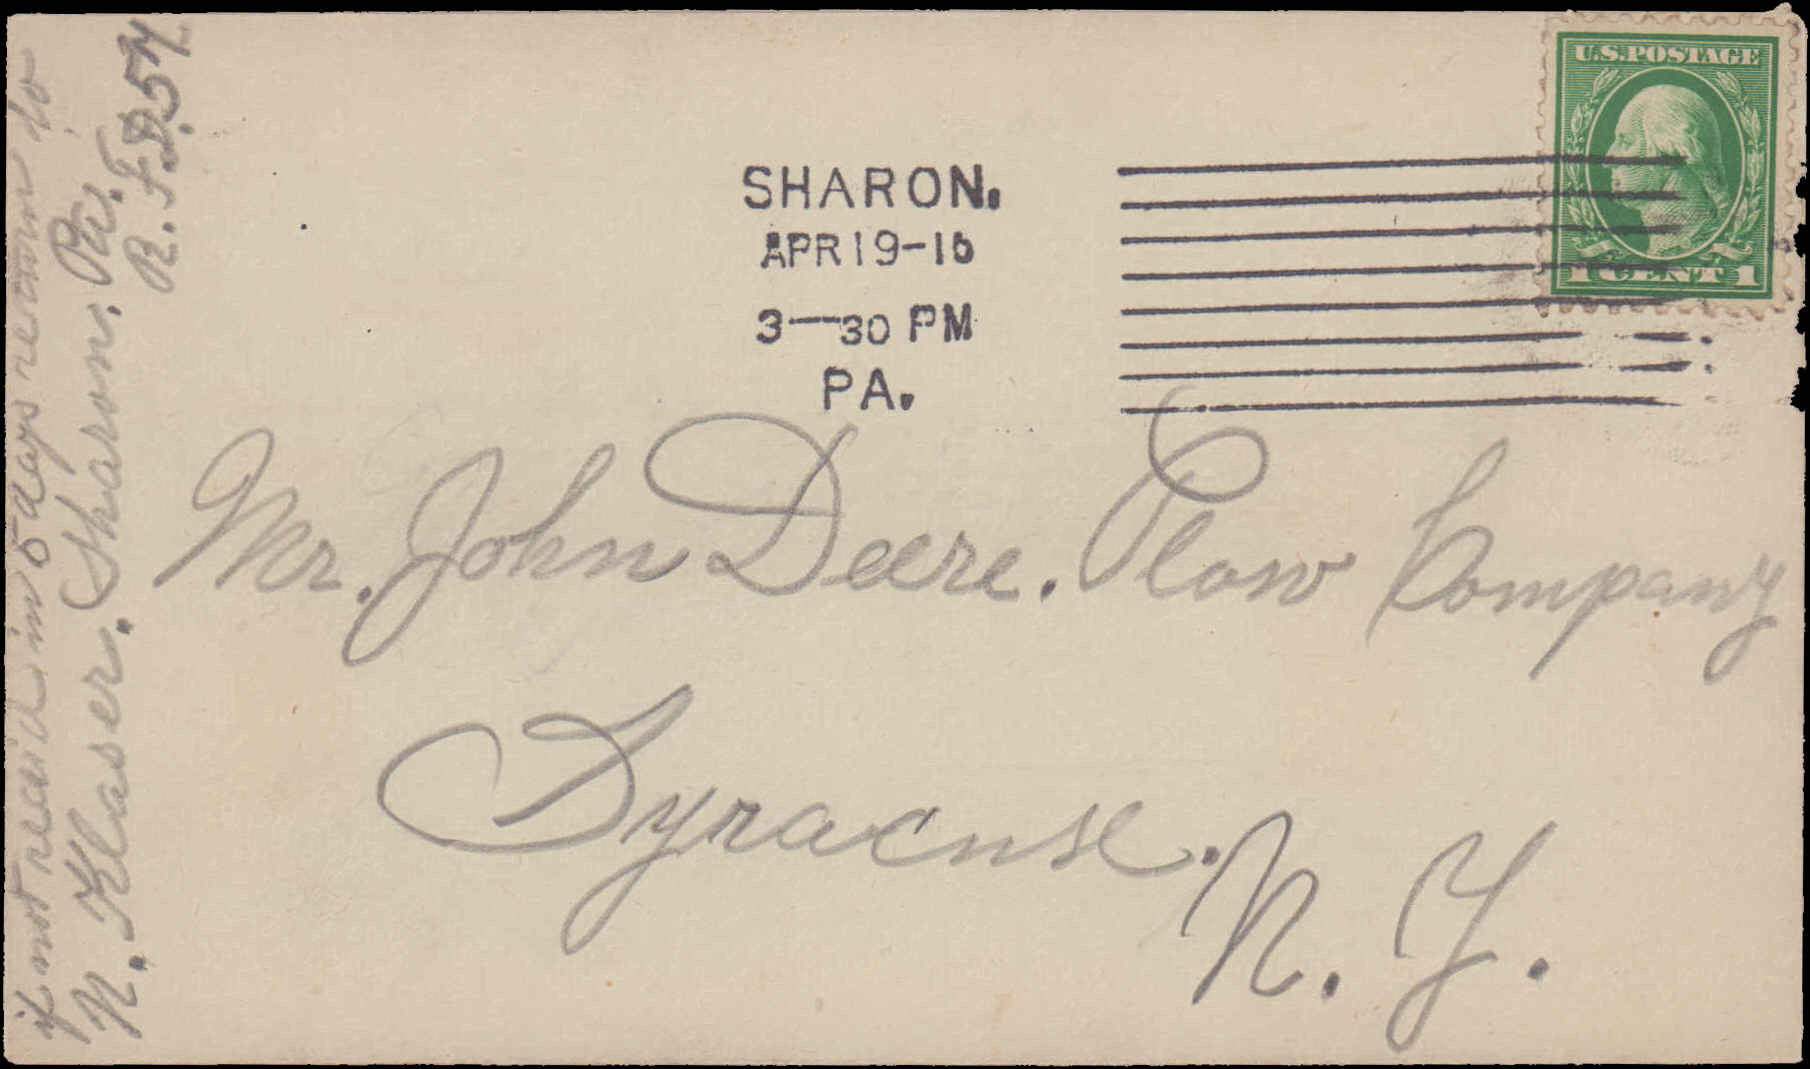 if not recivd in 5 days return to
N. Klaser. Sharon. Pa.
R.F.D. 54
U.S. POSTAGE
1 CENT 1
SHARON.
APR 19-16
3-30 PM
PA.
Mr. John Deere. Plow Company
Syracuse.
N. Y.